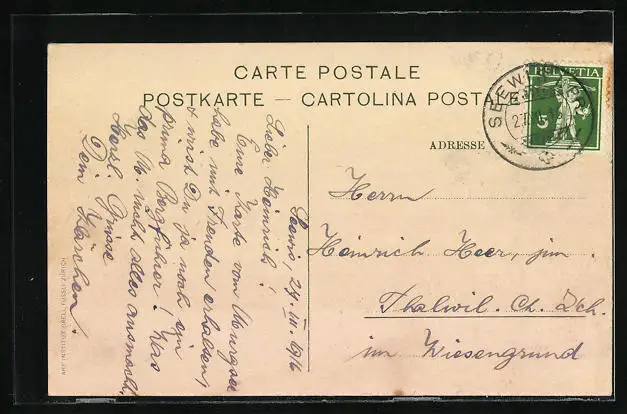 CARTE POSTALE
POSTKARTE — CARTOLINA POSTALE
HELVETIA
5
ADRESSE
Herrn
Heinrich Heer, jun.
Thalwil. Ct. Zch.
im Wiesengrund
Seewis, 24. VII. 1916
Lieber Heinrich!
Eine Karte vom Murgsee
habe mit Freuden erhalten,
& wirst Du ja noch ein
prima Bergführer! Was
das Vo nicht alles ausmacht,
Herzl. Grüsse
Dein
ART. INSTITUT ORELL FÜSSLI ZÜRICH